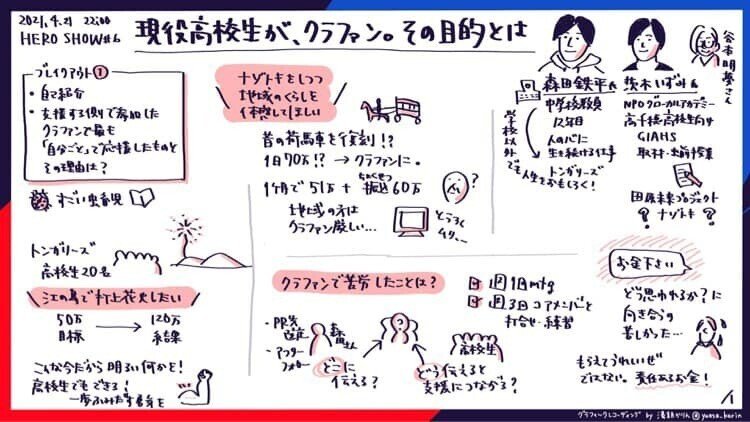 2021.4.21 22:00
HERO SHOW#6
現役高校生が、クラファン。その目的とは
ブレイクアウト①
・自己紹介
・支援する側で参加した
クラファンで最も
「自分ごと」って応援したものと
その理由は?
すごい虫意見
トンガリーズ
高校生20名
江の島で打上花火したい
50万
目標
120万
結果
こんな今だから明るい何かを!
高校生でもできる!
一歩ふみだす自身を
ナゾトキをしつつ
地域のくらしを
体感してほしい
昔の荷馬車を復刻!?
1日70万!? → クラファンに。
1ヶ月で51万+振込60万
ちょくせつ
?
地域の方は
クラファン厳しい…
とうろく
ムリ…
森田鉄平氏
中学校教員
12年目
人のバに
生き続ける仕事
トンガリーズ
学校以外
でも人生をおもしろく!
茨木いずみ氏
NPOグローカルアカデミー
高千穂・高校生向け
GIAHS
取材・出前授業
田原未来プロジェクト
?ナゾトキ?
谷本明夢さん
クラファンで苦労したことは?
週1回mtg
週3回コアメンバーと
打合せ・練習
・PR先
選定
・アフター
フォロー
森田
さん
どこに
伝える?
高校生
どう伝えると
支援につながる?
お金下さい
どう思われるか?に
向き合うの
苦しかった…
もらえてうれしいぜ
ではない。責任あるお金!
グラフィックレコーディング by 湯朝かりん @yuasa_karin